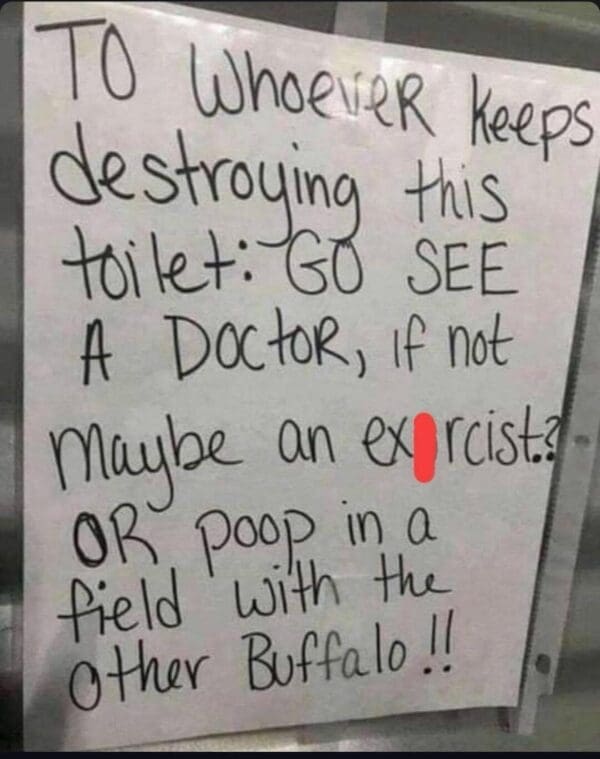 TO WhoeveR keeps
destroying this
toilet: GO SEE
A DoctoR, if not
maybe an ex rcist?
OR poop in a
field with the
other Buffalo!!